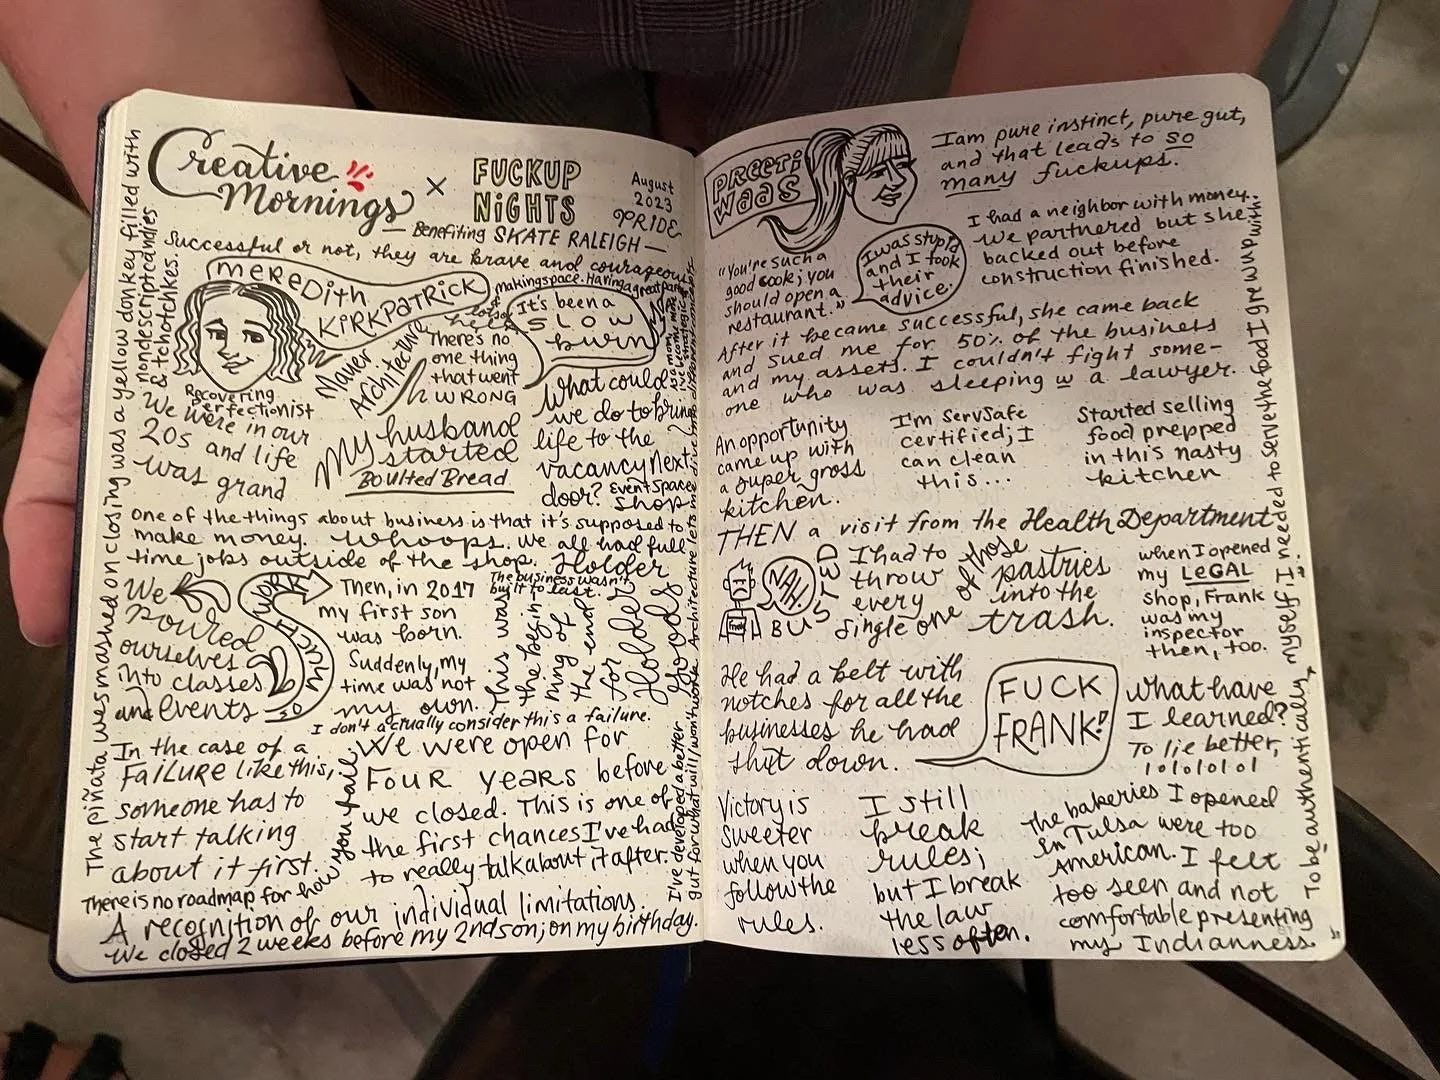 Creative Mornings × FUCKUP NiGHTS
August 2023 PRIDE
— Benefiting SKATE RALEIGH —
Successful or not, they are brave and courageous
MEREDITH
KiRKPATRiCK
Recovering
Perfectionist
Maurer
Architecture
makingspace. Having a great partner
lots of
help
There's no
one thing
that went
WRONG
It's been a
SLOW
burn
We were in our
20s and life
was grand
My husband
started
Boulted Bread
What could
we do to bring
life to the
vacancy next
door? Event Space
Shop
One of the things about business is that it's supposed to
make money. Whoops. We all had full
time jobs outside of the shop. Holder
We
Poured
ourselves
into classes
and events
SO MUCH WORK
Then, in 2017
my first son
was born.
Suddenly, my
time was not
my own.
The business wasn't
built to last.
This was
the begin-
ning of
the end
for
Holder
Goods
I don't actually consider this a failure.
In the case of a
FAiLURE like this,
someone has to
start talking
about it first.
There is no roadmap for how you fail.
We were open for
FOUR YEARS before
we closed. This is one of
the first chances I've had
to really talk about it after.
A recognition of our individual limitations.
We closed 2 weeks before my 2nd son; on my birthday.
The piñata we smashed on closing was a yellow donkey filled with
nondescript candies
& tchotchkes.
I've developed a better
gut for what will/won't work. Architecture lets me dive into different concepts
PREETi
Waas
I am pure instinct, pure gut,
and that leads to so
many fuckups.
"You're such a
good cook; you
should open a
restaurant."
I was stupid
and I took
their
advice.
I had a neighbor with money.
We partnered but she
backed out before
construction finished.
After it became successful, she came back
and sued me for 50% of the business
and my assets. I couldn't fight some-
one who was sleeping w a lawyer.
An opportunity
came up with
a super gross
kitchen.
I'm ServSafe
certified; I
can clean
this...
Started selling
food prepped
in this nasty
kitchen
THEN a visit from the Health Department
NAH.
BUSTED
I had to
throw
every
single one of those
pastries
into the
trash.
when I opened
my LEGAL
shop, Frank
was my
inspector
then, too.
He had a belt with
notches for all the
businesses he had
shut down.
FUCK
FRANK!
What have
I learned?
To lie better,
lololololol
Victory is
sweeter
when you
follow the
rules.
I still
break
rules;
but I break
the law
less often.
The bakeries I opened
in Tulsa were too
American. I felt
too seen and not
comfortable presenting
my Indianness.
To be authentically myself I needed to serve the food I grew up with.